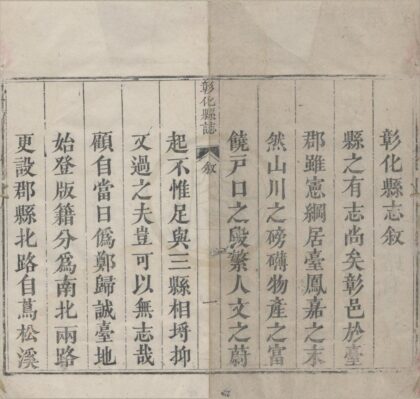 彰化縣志敘
縣之有志尚矣彰邑於臺
郡雖憲綱居臺鳳嘉之末
然山川之磅礴物產之富
饒戶口之殷繁人文之蔚
彰化縣誌 敘 一
起不惟足與三縣相埒抑
又過之夫豈可以無志哉
顧自當日偽鄭歸誠臺地
始登版籍分為南北兩路
更設郡縣北路自蔦松溪